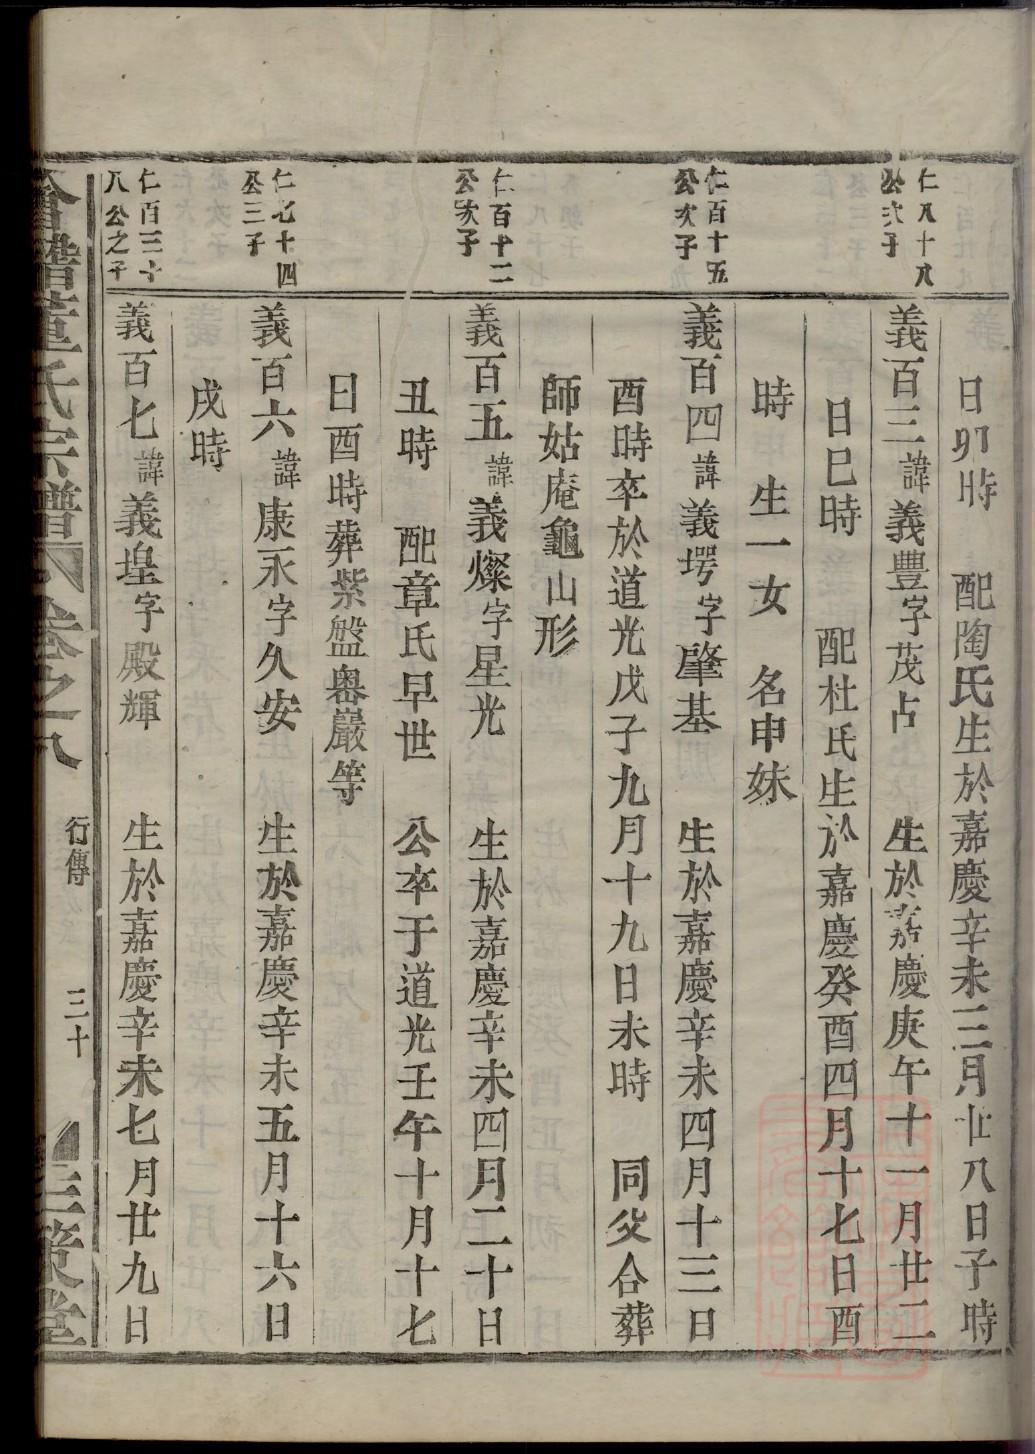 日卯時　配陶氏生於嘉慶辛未三月廿八日子時
仁八十八
公次子
義百三諱義豐字茂占　生於嘉慶庚午十一月廿二
日巳時　配杜氏生於嘉慶癸酉四月十七日酉
時　生一女　名申妹
仁百十五
公次子
義百四諱義堮字肇基　生於嘉慶辛未四月十三日
酉時卒於道光戊子九月十九日未時　同父合葬
師姑庵龜山形
仁百十二
公次子
義百五諱義燦字星光　生於嘉慶辛未四月二十日
丑時　配章氏早世　公卒于道光壬午十月十七
日酉時葬紫盤嶴巖等
仁七十四
公三子
義百六諱康永字久安　生於嘉慶辛未五月十六日
戌時
仁百三十
八公之子
義百七諱義堭字殿輝　生於嘉慶辛未七月廿九日
合譜董氏宗譜　卷之八　行傳　三十　三策堂